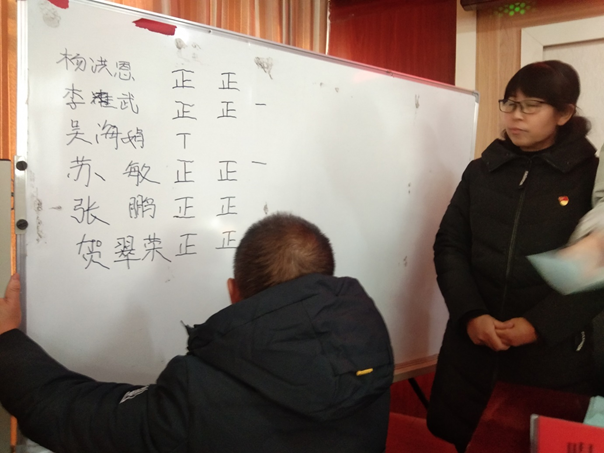 杨洪恩 正 正
李建武 正 正 一
吴海娟 T
苏敏 正 正 一
张鹏 正 正
贺翠荣 正 正